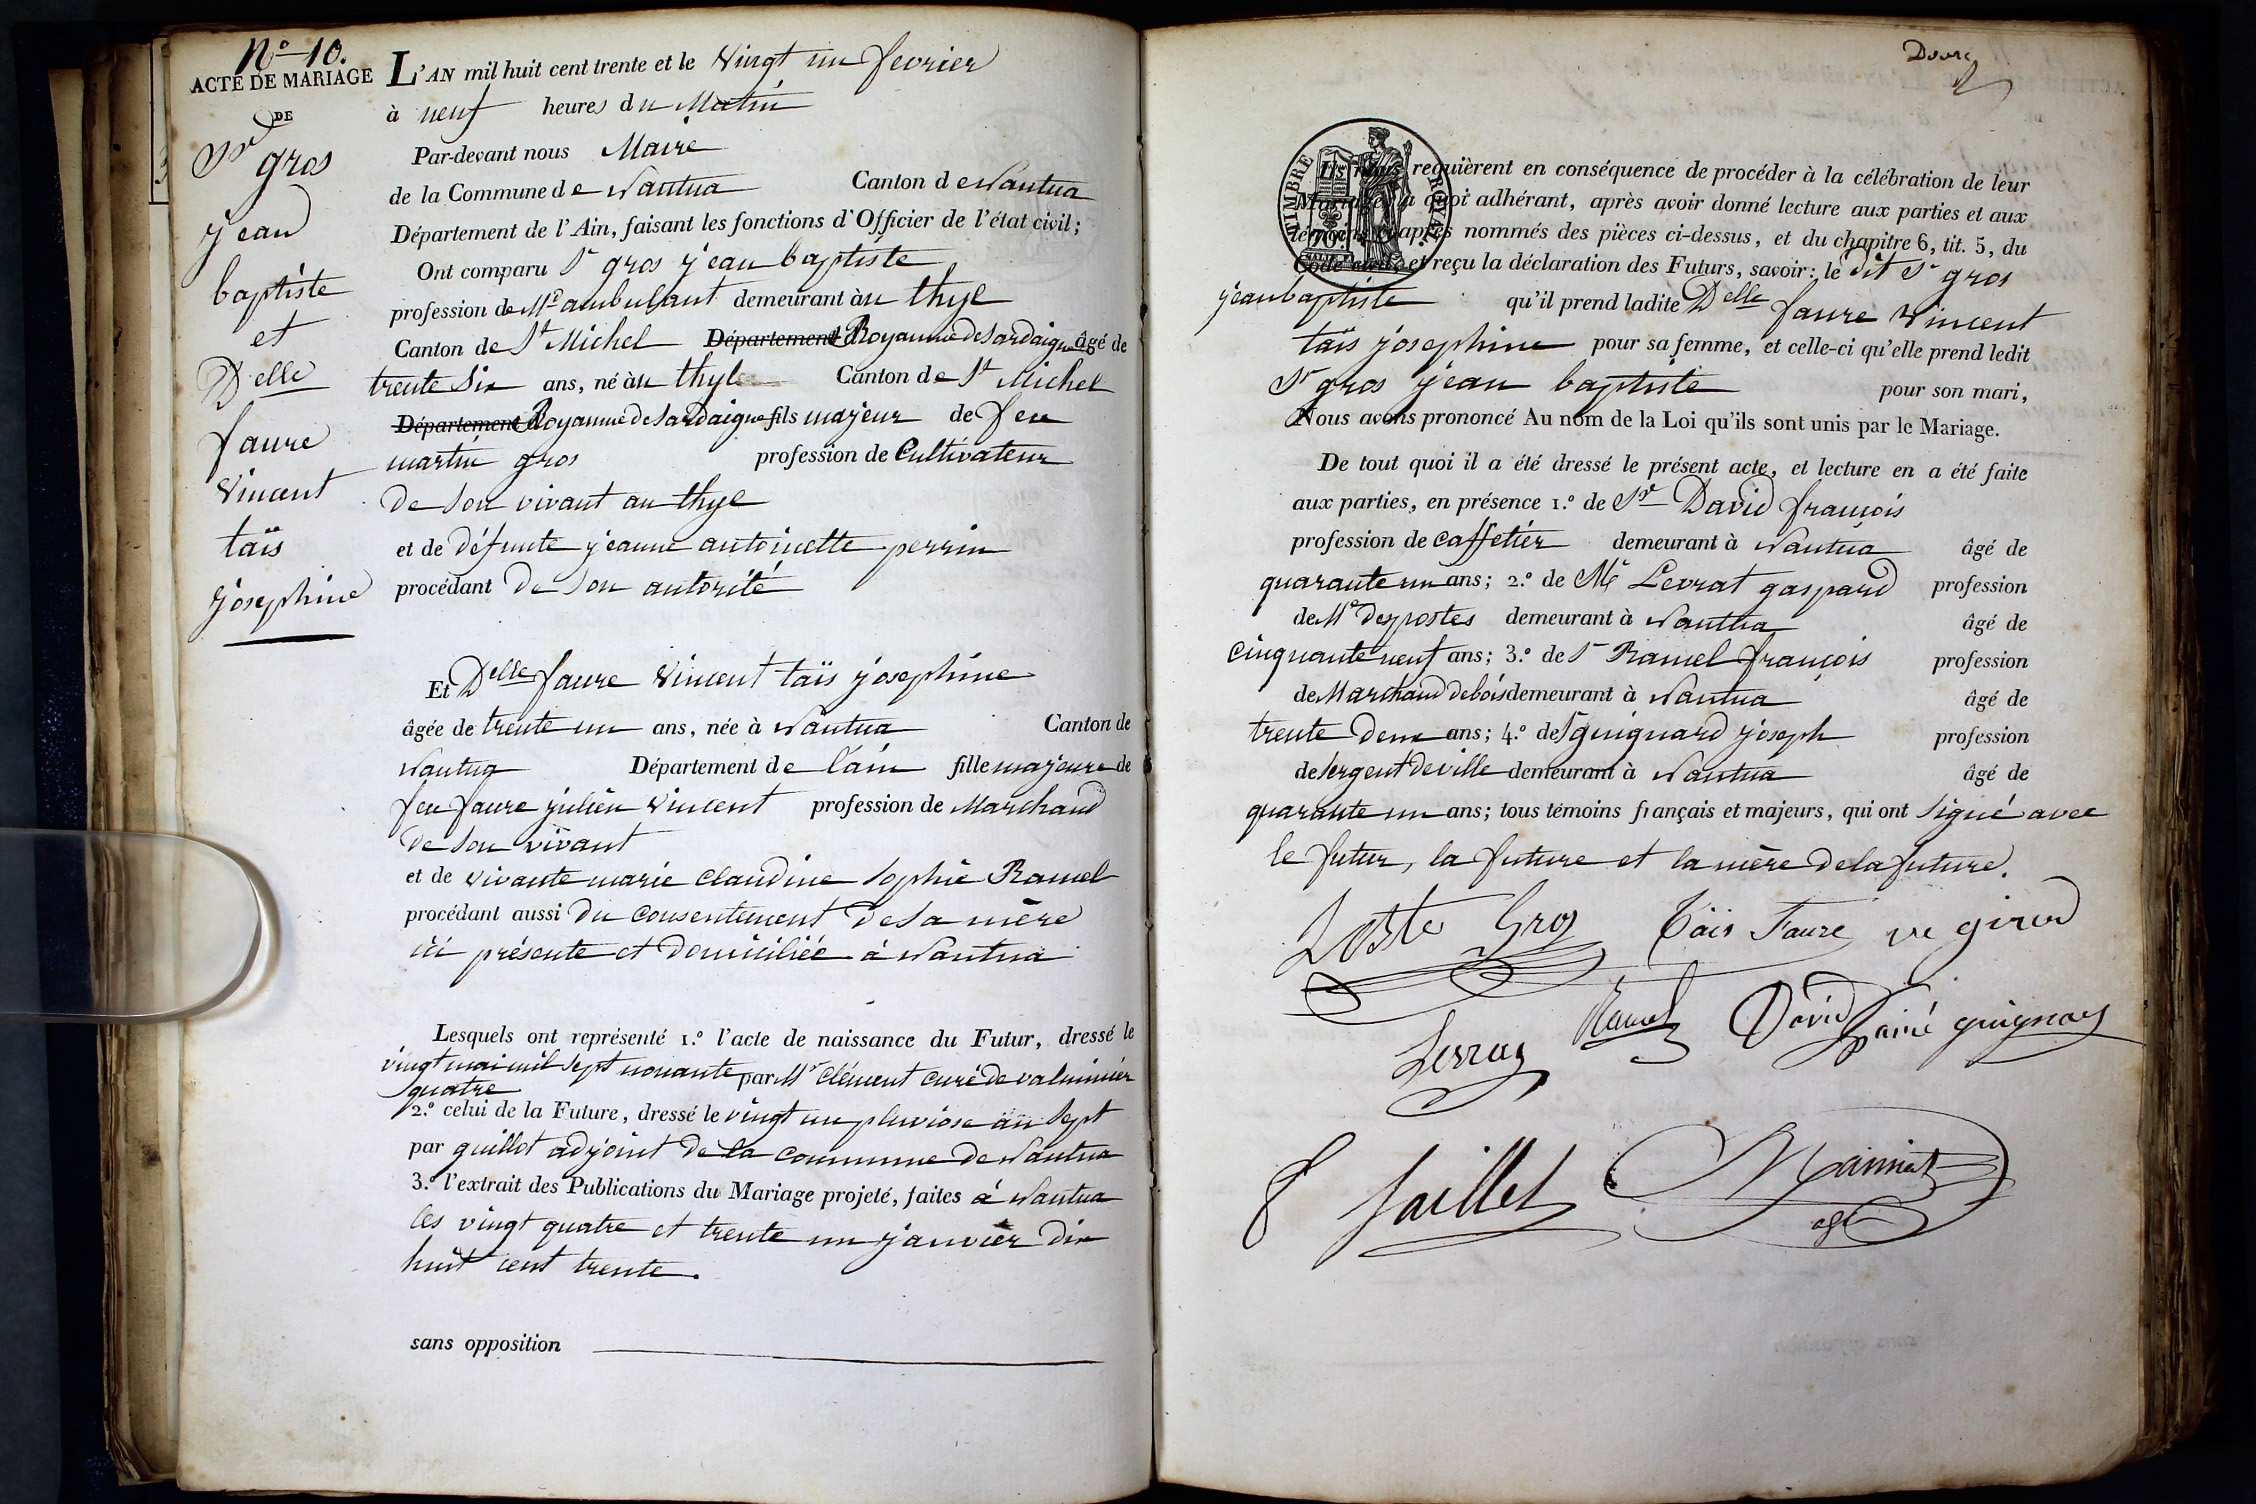 N.o 10.
ACTE DE MARIAGE
DE
Sr gros
jean
baptiste
et
Delle
faure
vincent
taïs
josephine
L'AN mil huit cent trente et le vingt un fevrier
à neuf heures du Matin
Par-devant nous Maire
de la Commune de Nantua Canton de Nantua
Département de l'Ain, faisant les fonctions d'Officier de l'état civil;
Ont comparu Sr gros jean baptiste
profession de Md ambulant demeurant àu thyl
Canton de St Michel Département Royaume de Sardaigne âgé de
trente Six ans, né àu thyl Canton de St Michel
Département Royaume de Sardaigne fils majeur de feu
martin gros profession de Cultivateur
de son vivant au thyl
et de défunte jeanne antoinette perrin
procédant de son autorité
Et Delle faure vincent taïs josephine
âgée de trente un ans, née à Nantua Canton de
Nantua Département de l'ain fille majeure de
feu faure julien vincent profession de Marchand
de son vivant
et de vivante marie claudine sophie Ramel
procédant aussi du consentement de sa mère
ici présente et domiciliée à Nantua
Lesquels ont représenté 1.o l'acte de naissance du Futur, dressé le
vingt mai mil sept nonante par Mr Clément curé de valminier
quatre
2.o celui de la Future, dressé le vingt un pluviose an sept
par guillot adjoint de la commune de Nantua
3.o l'extrait des Publications du Mariage projeté, faites à Nantua
les vingt quatre et trente un janvier dix
huit cent trente.
sans opposition
TIMBRE ROYAL
Ils nous requièrent en conséquence de procéder à la célébration de leur
Mariage; à quoi adhérant, après avoir donné lecture aux parties et aux
témoins ci-après nommés des pièces ci-dessus, et du chapitre 6, tit. 5, du
Code civil, et reçu la déclaration des Futurs, savoir: le dit Sr gros
jean baptiste qu'il prend ladite Delle faure vincent
taïs josephine pour sa femme, et celle-ci qu'elle prend ledit
Sr gros jean baptiste pour son mari,
Nous avons prononcé Au nom de la Loi qu'ils sont unis par le Mariage.
De tout quoi il a été dressé le présent acte, et lecture en a été faite
aux parties, en présence 1.o de Sr David françois
profession de caffetier demeurant à Nantua âgé de
quarante un ans; 2.o de Mr Levrat gaspard profession
de Me de postes demeurant à Nantua âgé de
cinquante neuf ans; 3.o de Sr Ramel françois profession
de Marchand de bois demeurant à Nantua âgé de
trente deux ans; 4.o de Sr guignard joseph profession
de sergent de ville demeurant à Nantua âgé de
quarante un ans; tous témoins français et majeurs, qui ont signé avec
le futur, la future et la mère de la future.
Gros Taïs Faure ve girod
Ramel David ainé guignard
Levrat
Jaillet